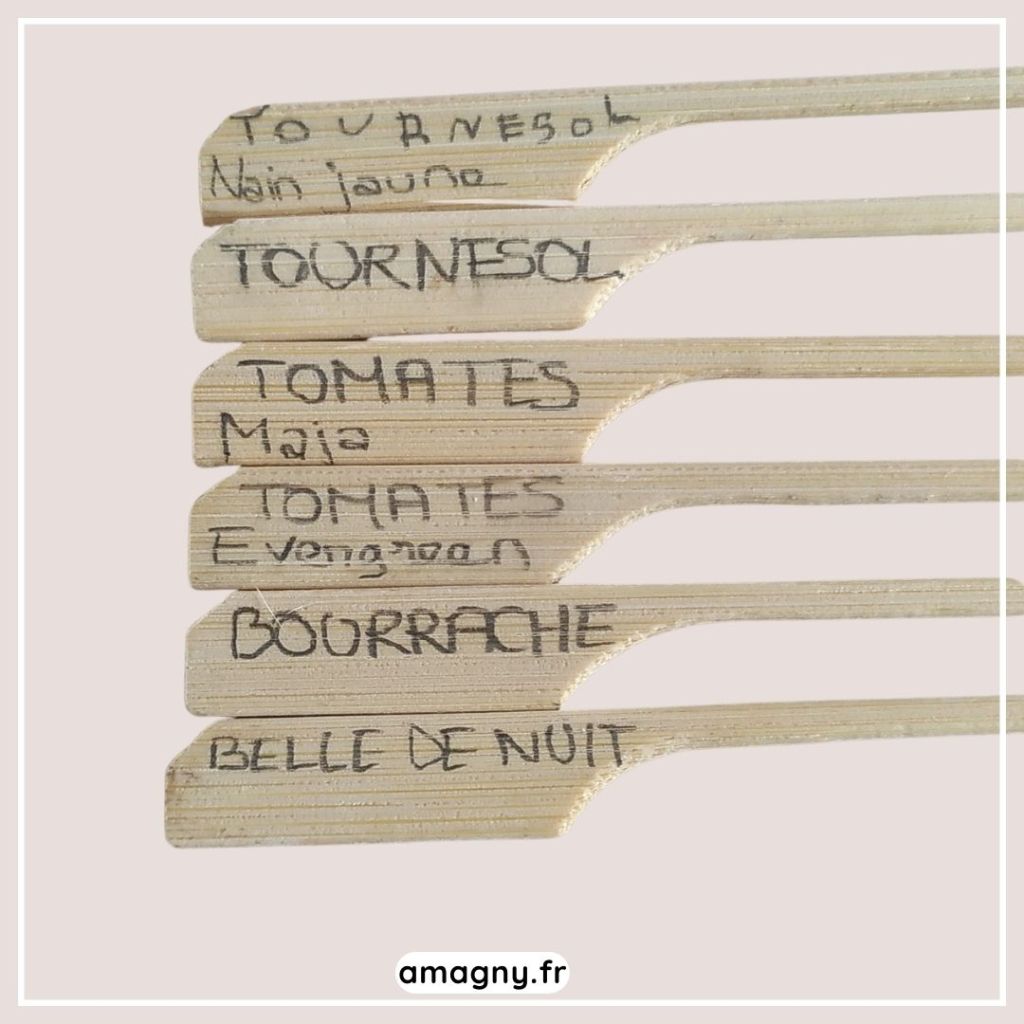 TOURNESOL
Nain jaune
TOURNESOL
TOMATES
Maja
TOMATES
Evergreen
BOURRACHE
BELLE DE NUIT
amagny.fr